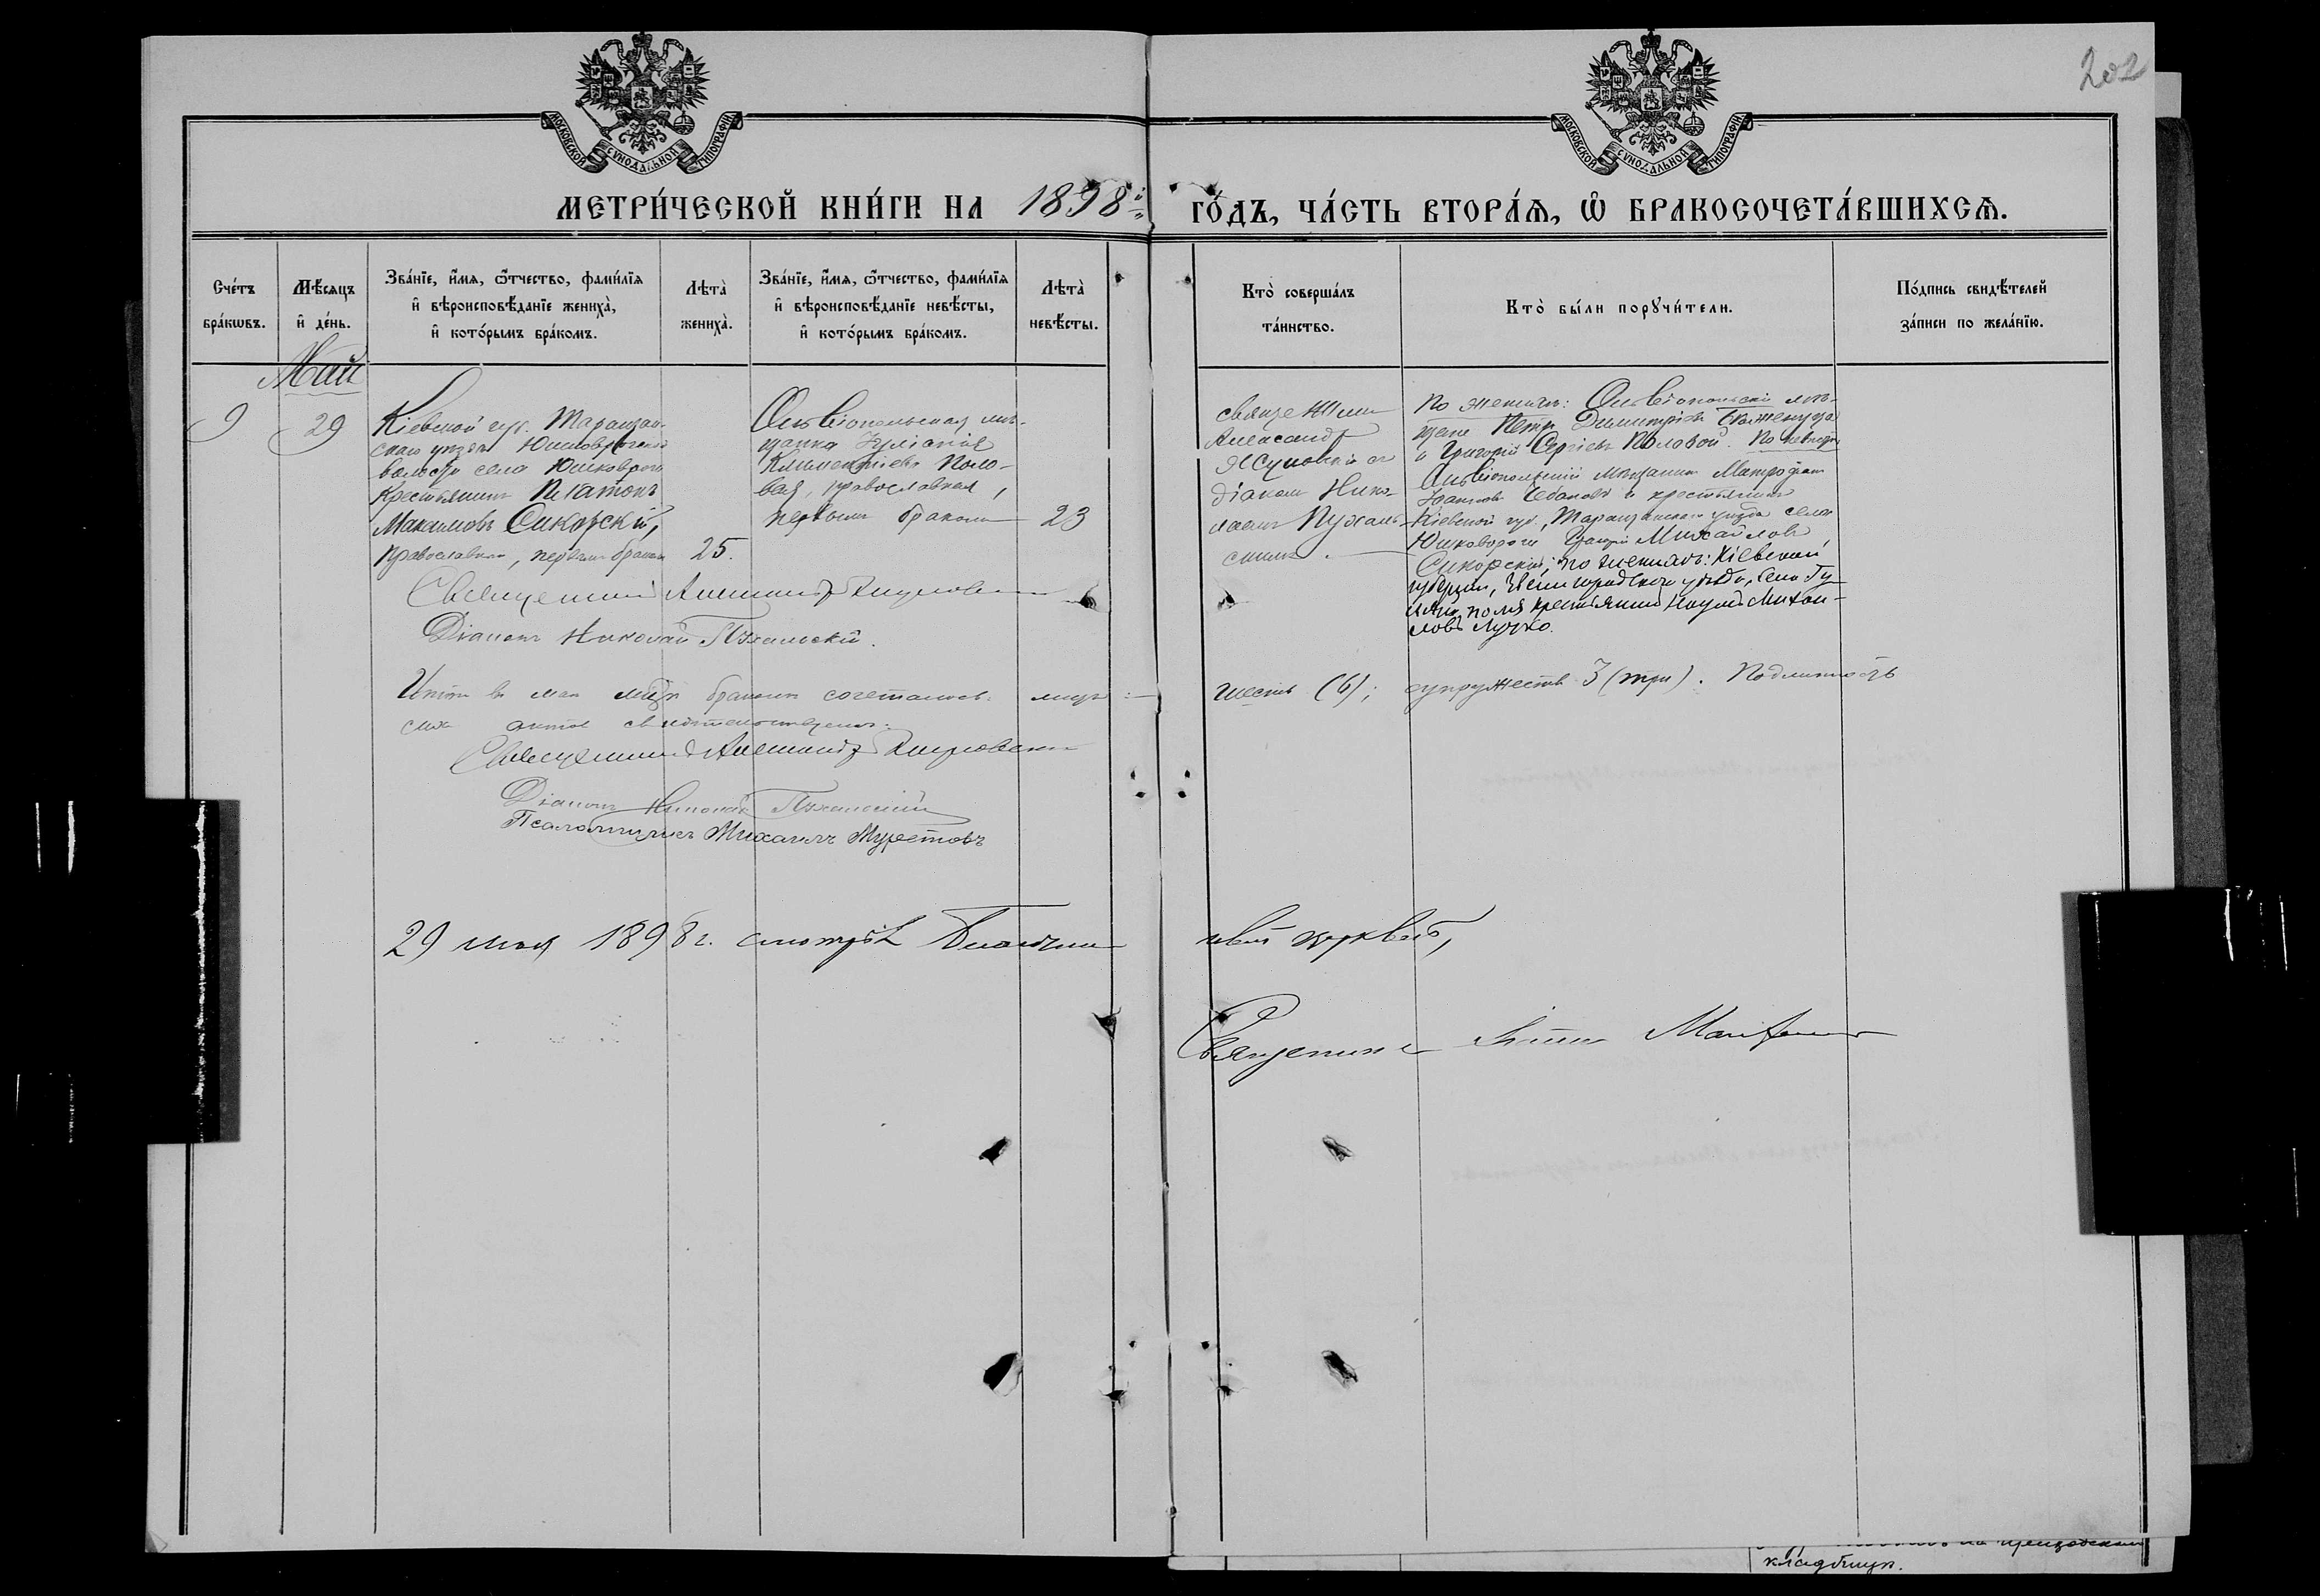 202
МОСКОВСКОЙ СѴНОДАЛЬНОЙ ТИПОГРАФІИ
МОСКОВСКОЙ СѴНОДАЛЬНОЙ ТИПОГРАФІИ
МЕТРИ́ЧЕСКОЙ КНИ́ГИ НА 1898й ГО́ДЪ, ЧА́СТЬ ВТОРА́Ѧ, Ѽ БРАКОСОЧЕТА́ВШИХСѦ.
Сче́тъ
бра́кѡвъ.
Мѣ́сяцъ
и҆ де́нь.
Зва́нїе, и҆́мѧ, ѻ҆́тчество, фами́лїѧ
и҆ вѣроисповѣ́данїе жениха̀,
и҆ кото́рымъ бра́комъ.
Лѣта̀
жениха̀.
Зва́нїе, и҆́мѧ, ѻ҆́тчество, фами́лїѧ
и҆ вѣроисповѣ́данїе невѣ́сты,
и҆ кото́рымъ бра́комъ.
Лѣта̀
невѣ́сты.
Кто̀ соверша́лъ
та́инство.
Кто̀ бы́ли порꙋчи́тели.
По́дпись свидѣ́телей
за́писи по жела́нїю.
Май
9
29
Кіевской губ. Таращан-
скаго уѣзда Юшковрогской
волости села Юшковрога
Крестьянинъ Платонъ
Максимовъ Сикорскій,
православнаго, первымъ бракомъ
25.
Ольвіопольская мѣ-
щанка Іуліанія
Климентіева Поло-
вая, православная,
первымъ бракомъ
23
Священникъ
Александръ
Ясуловскій съ
діакономъ Нико-
лаемъ Пухаль-
скимъ.
По женихѣ: Ольвіопольскіе мѣ-
щане Петръ Димитріевъ
и Григорій Сергіевъ Половой. По невѣстѣ
Ольвіопольскій мѣщанинъ Митрофанъ
Іоанновъ Чебановъ и крестьянинъ
Кіевской губ., Таращанскаго уѣзда села
Юшковрога Михайловъ
Сикорскій; по женихѣ: Кіевской
губерніи, Звенигородскаго уѣзда, села Гу-
поля крестьянинъ Наумъ Михай-
ловъ Лучко.
Священникъ Александръ
Діаконъ Николай Пухальскій.
Итого въ маѣ мѣсяцѣ бракомъ сочеталось лицъ шесть (6); супружествъ 3 (три). Подлинность
сихъ актовъ свидѣтельствуемъ:
Священникъ Александръ
Діаконъ Николай Пухальскій
Псаломщикъ Михаилъ Муретовъ
29 мая 1898 г. смотрѣлъ церквей,
Священникъ
кладбищѣ.